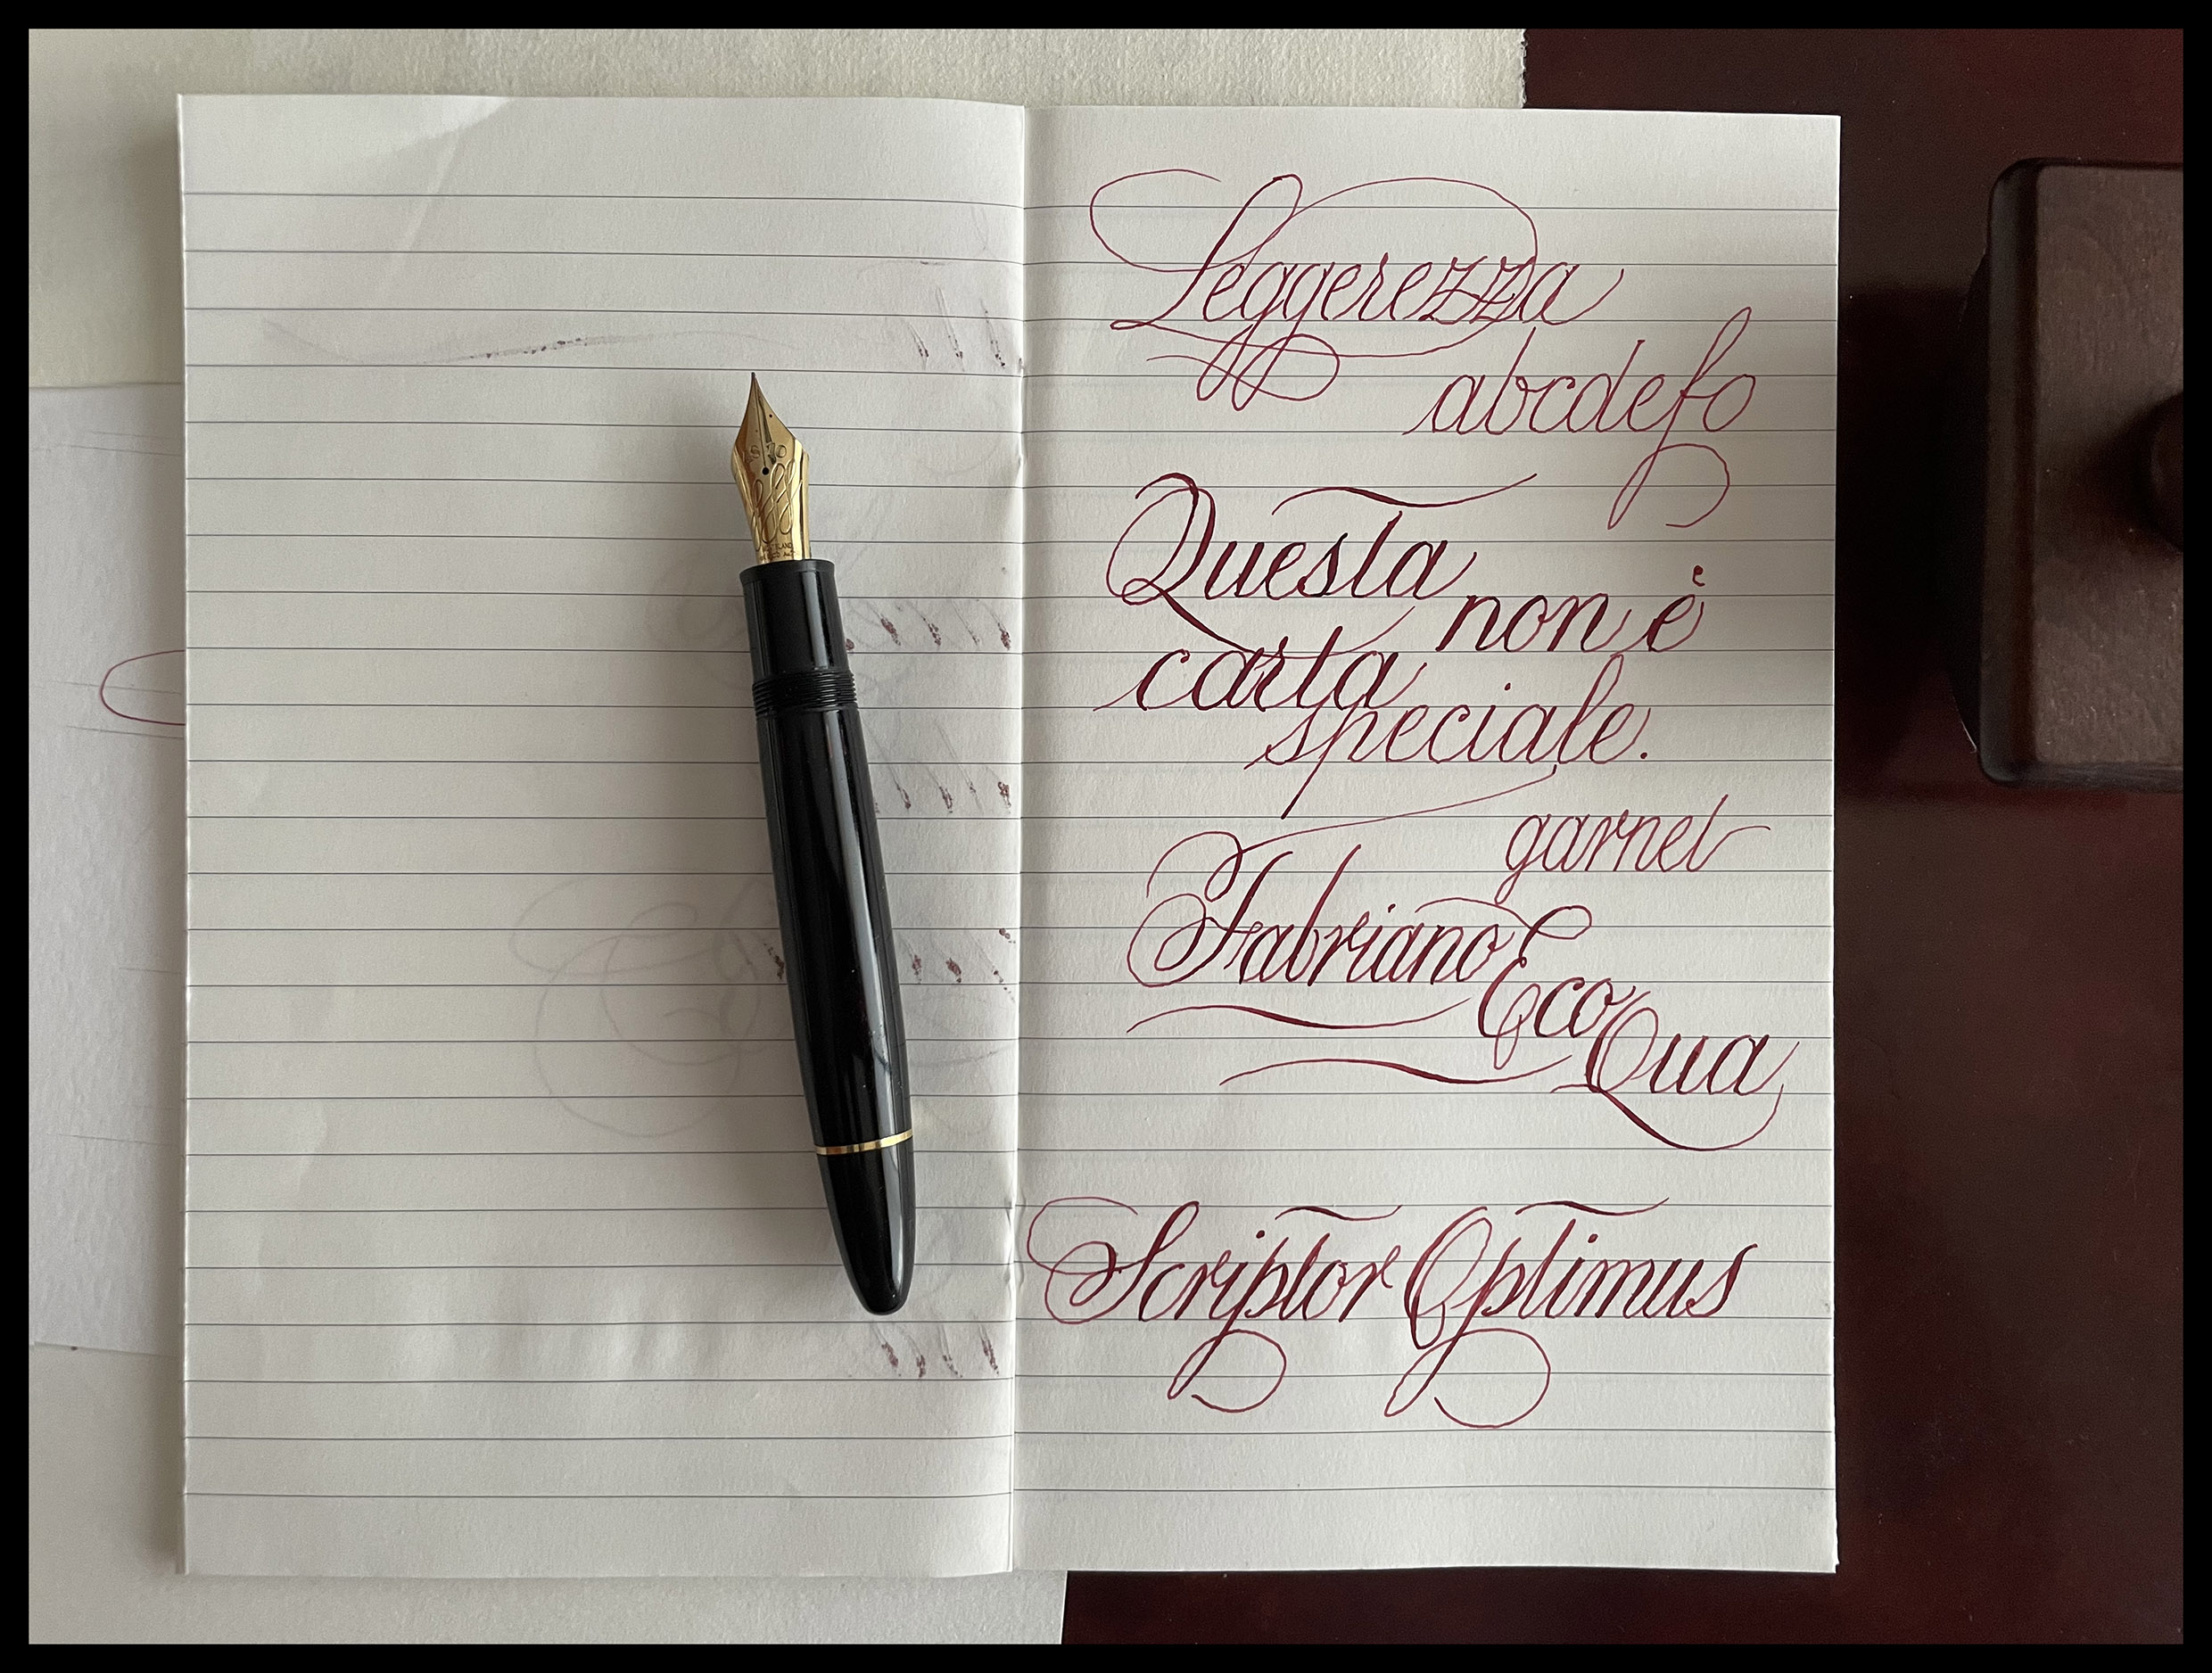 Leggerezza
abcdefo
Questa
non è
carta
speciale.
garnet
Fabriano
Eco
Qua
Scriptor Optimus